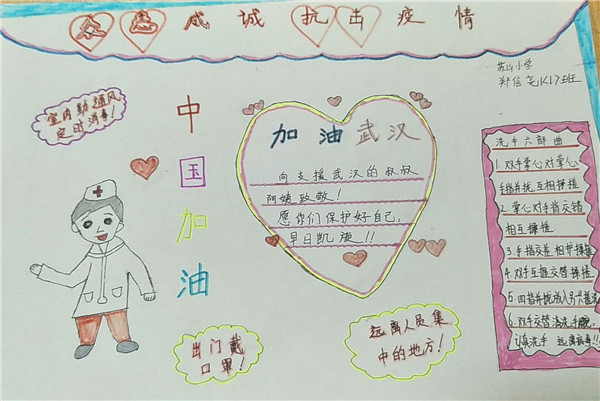 众志成诚抗击疫情
苏山小学
室内勤通风
定时消毒!
中
国
加
油
加油武汉
向支援武汉的叔叔
阿姨致敬!
愿你们保护好自己,
早日凯旋!!
出门戴
口罩!
远离人员集
中的地方!
洗手六部曲
1.双手掌心对掌心
手指并拢互相揉搓
2.掌心对手指交错
相互揉搓
3.手指交差相护揉搓
4.对手互握交替揉搓
5.四指并拢放入另只
6.双手交替清洗手腕
认真洗手 远离病毒!!